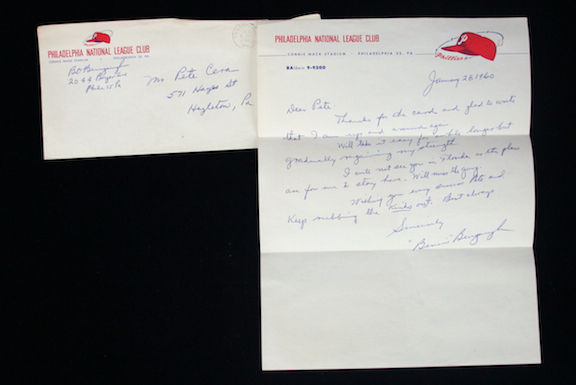 PHILADELPHIA NATIONAL LEAGUE CLUB
CONNIE MACK STADIUM · PHILADELPHIA 32, PA.
Mr Pete Cera
571 Hayes St
Hazleton, Pa
PHILADELPHIA NATIONAL LEAGUE CLUB
CONNIE MACK STADIUM · PHILADELPHIA 32, PA.
Phillies
BAldwin 9-9200
January 28 1960
Dear Pete
Thanks for the card and glad to write
that I am up and around again
Will take it easy for awhile longer but
gradually regaining my strength.
I will not see you in Florida as the plans
are for me to stay here. Will miss the gang.
Wishing you every success Pete and
Keep rubbing the out. Best always
Sincerely
"Benny" Bengough